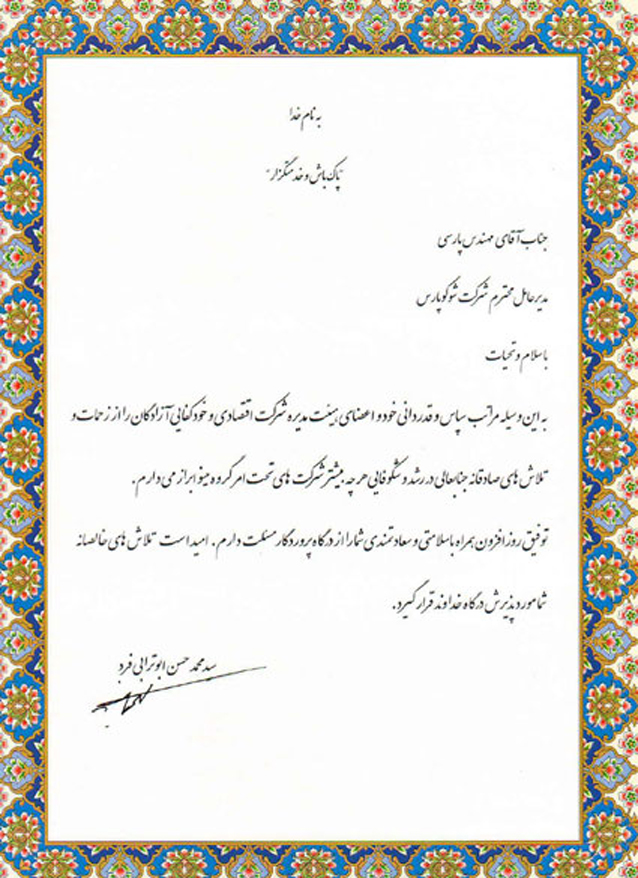 به نام خدا
"پاک باش و خدمتگزار"
جناب آقای مهندس پارسی
مدیرعامل محترم شرکت شوکوپارس
با سلام و تحیات
به این وسیله مراتب سپاس و قدردانی خود و اعضای هیئت مدیره شرکت اقتصادی و خودکفایی آزادگان را از زحمات و
تلاش های صادقانه جنابعالی در رشد و شکوفایی هرچه بیشتر شرکت های تحت امر گروه مینو ابراز می دارم.
توفیق روزافزون همراه با سلامتی و سعادتمندی شما را از درگاه پروردگار مسئلت دارم. امید است تلاش های خالصانه
شما مورد پذیرش درگاه خداوند قرار گیرد.
سید محمد حسن ابوترابی فرد